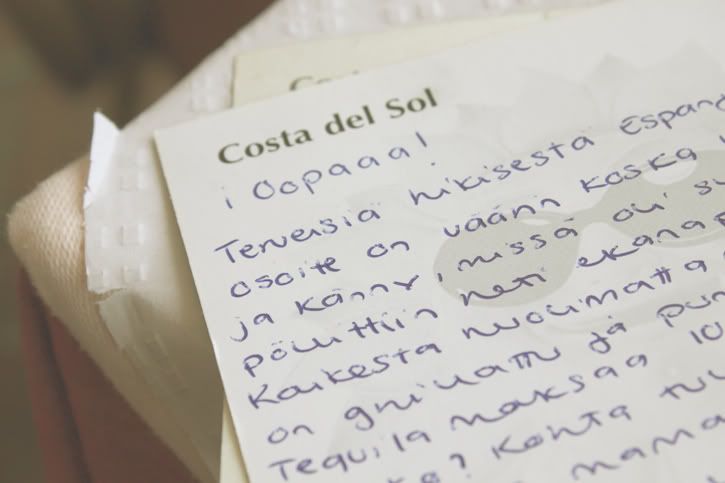 Cos
Costa del Sol
¡Oopaaa!
Terveisiä hikisestä Espan
osoite on väärin koska
ja känny, missä oli su
pöllittiin heti ekana p
Kaikesta huolimatta
on grillattu ja pu
Tequila maksaa 10
? Kohta tu
mama